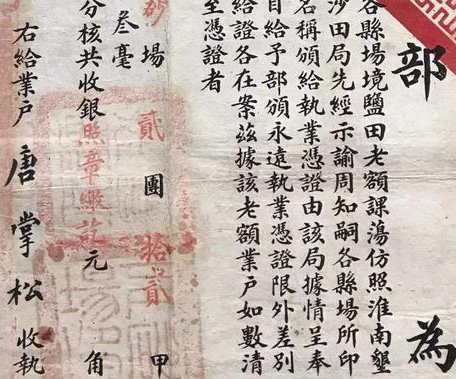 部
為
各縣場境鹽田老額課蕩仿照淮南墾
沙田局先經示諭周知嗣各縣場所印
名稱頒給執業憑證由該局據情呈奉
自給予部頒永遠執業憑證限外差別
給證各在案茲據該老額業戶如數清
至憑證者
場 貳 團 拾貳 甲
叁毫
分核共收銀 照章繳訖 元 角
右給業戶 唐掌松 收執